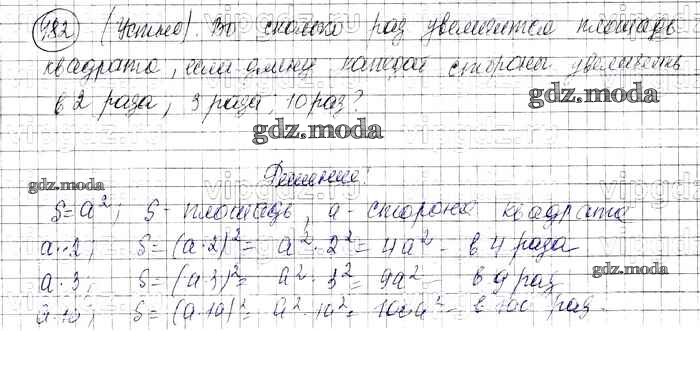 482 (Устно). Во сколько раз увеличится площадь
квадрата, если длину каждой стороны увеличить
в 2 раза, 3 раза, 10 раз?
gdz.moda
gdz.moda
Решение:
gdz.moda
S=a²; S- площадь, a- сторона квадрата
a·2; S=(a·2)²= a²·2²= 4a²- в 4 раза
a·3; S=(a·3)²= a²·3²= 9a²- в 9 раз
gdz.moda
a·10; S=(a·10)²= a²·10²= 100a²- в 100 раз.